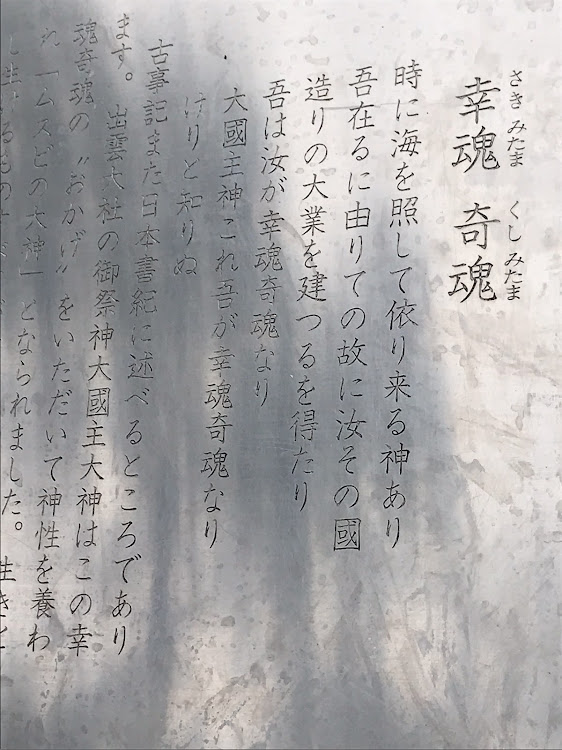 さき みたま くし みたま
幸魂 奇魂
時に海を照して依り来る神あり
吾在るに由りての故に汝その國
造りの大業を建つるを得たり
吾は汝が幸魂奇魂なり
大國主神これ吾が幸魂奇魂なり
けりと知りぬ
古事記また日本書紀に述べるところであり
ます。 出雲大社の御祭神大國主大神はこの幸
魂奇魂の〝おかげ〟をいただいて神性を養わ
れ「ムスビの大神」となられました。 生きと
し生けるもの